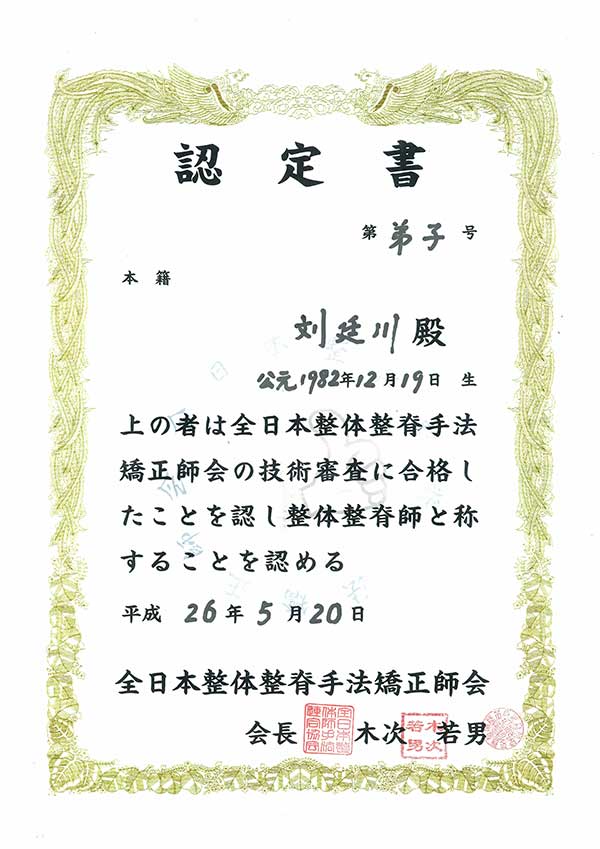 認定書
第 弟子 号
本籍
刘廷川殿
公元1982年12月19日 生
上の者は全日本整体整脊手法
矯正師会の技術審査に合格し
たことを認し整体整脊師と称
することを認める
平成 26年 5月 20日
全日本整体整脊手法矯正師会
会長 木次 若男
木次
若男